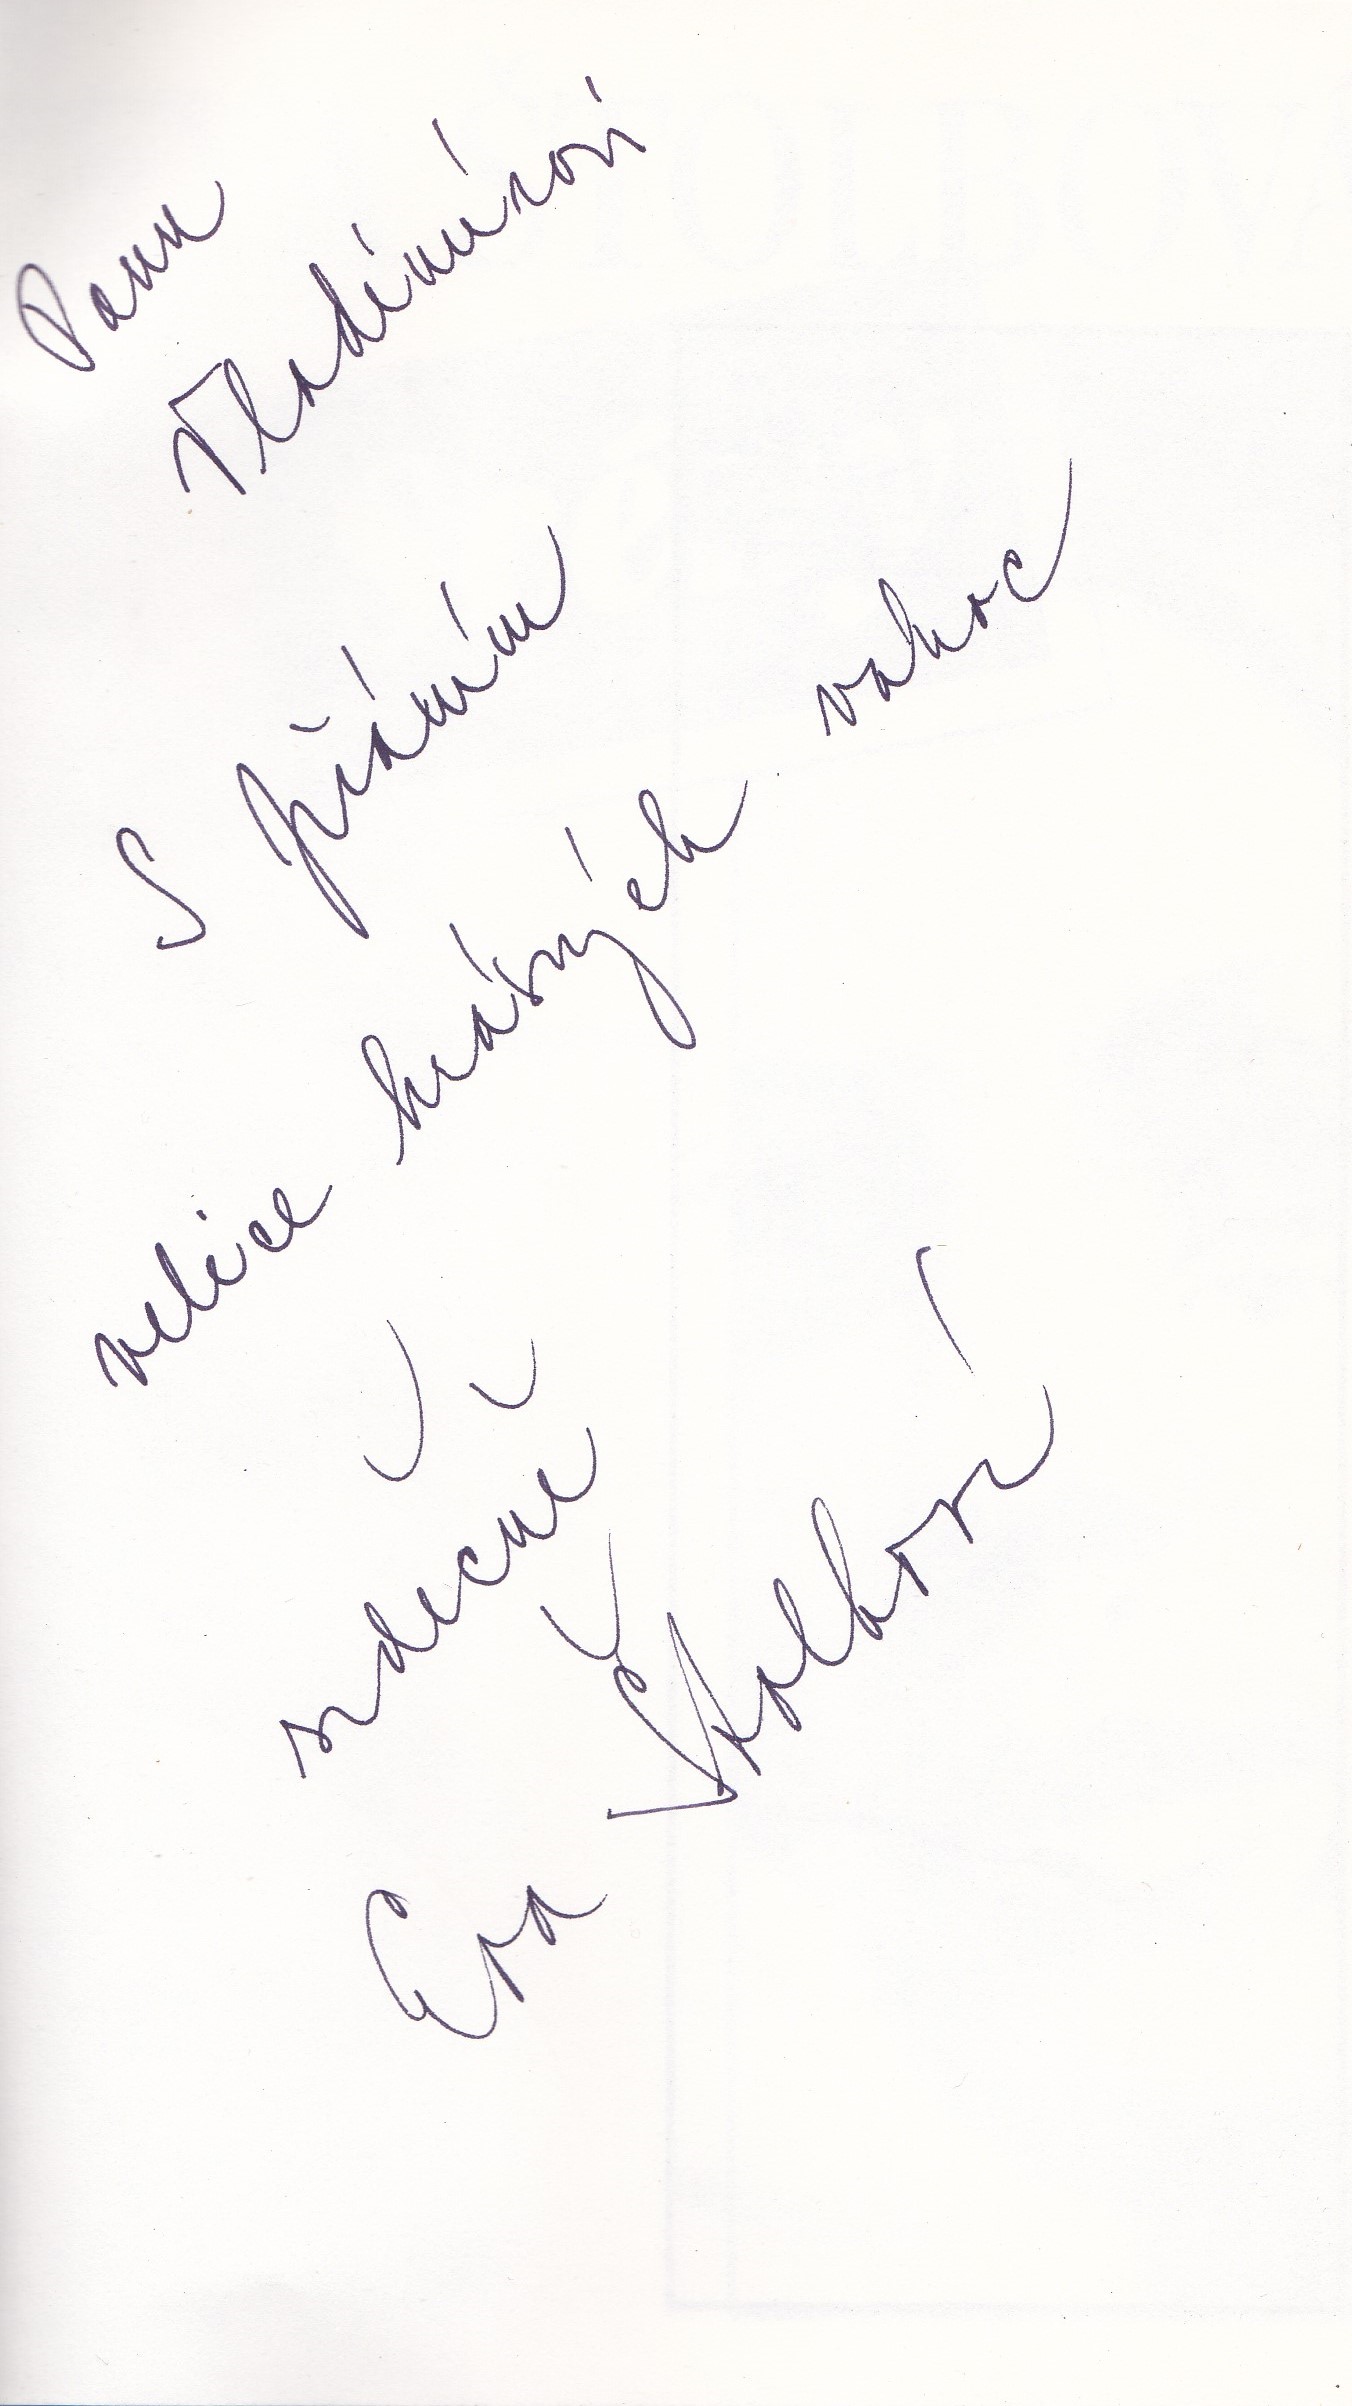 Panu
Vladimírovi
S přáním
velice krásných vanoc
srdečně
Eva Štolbová